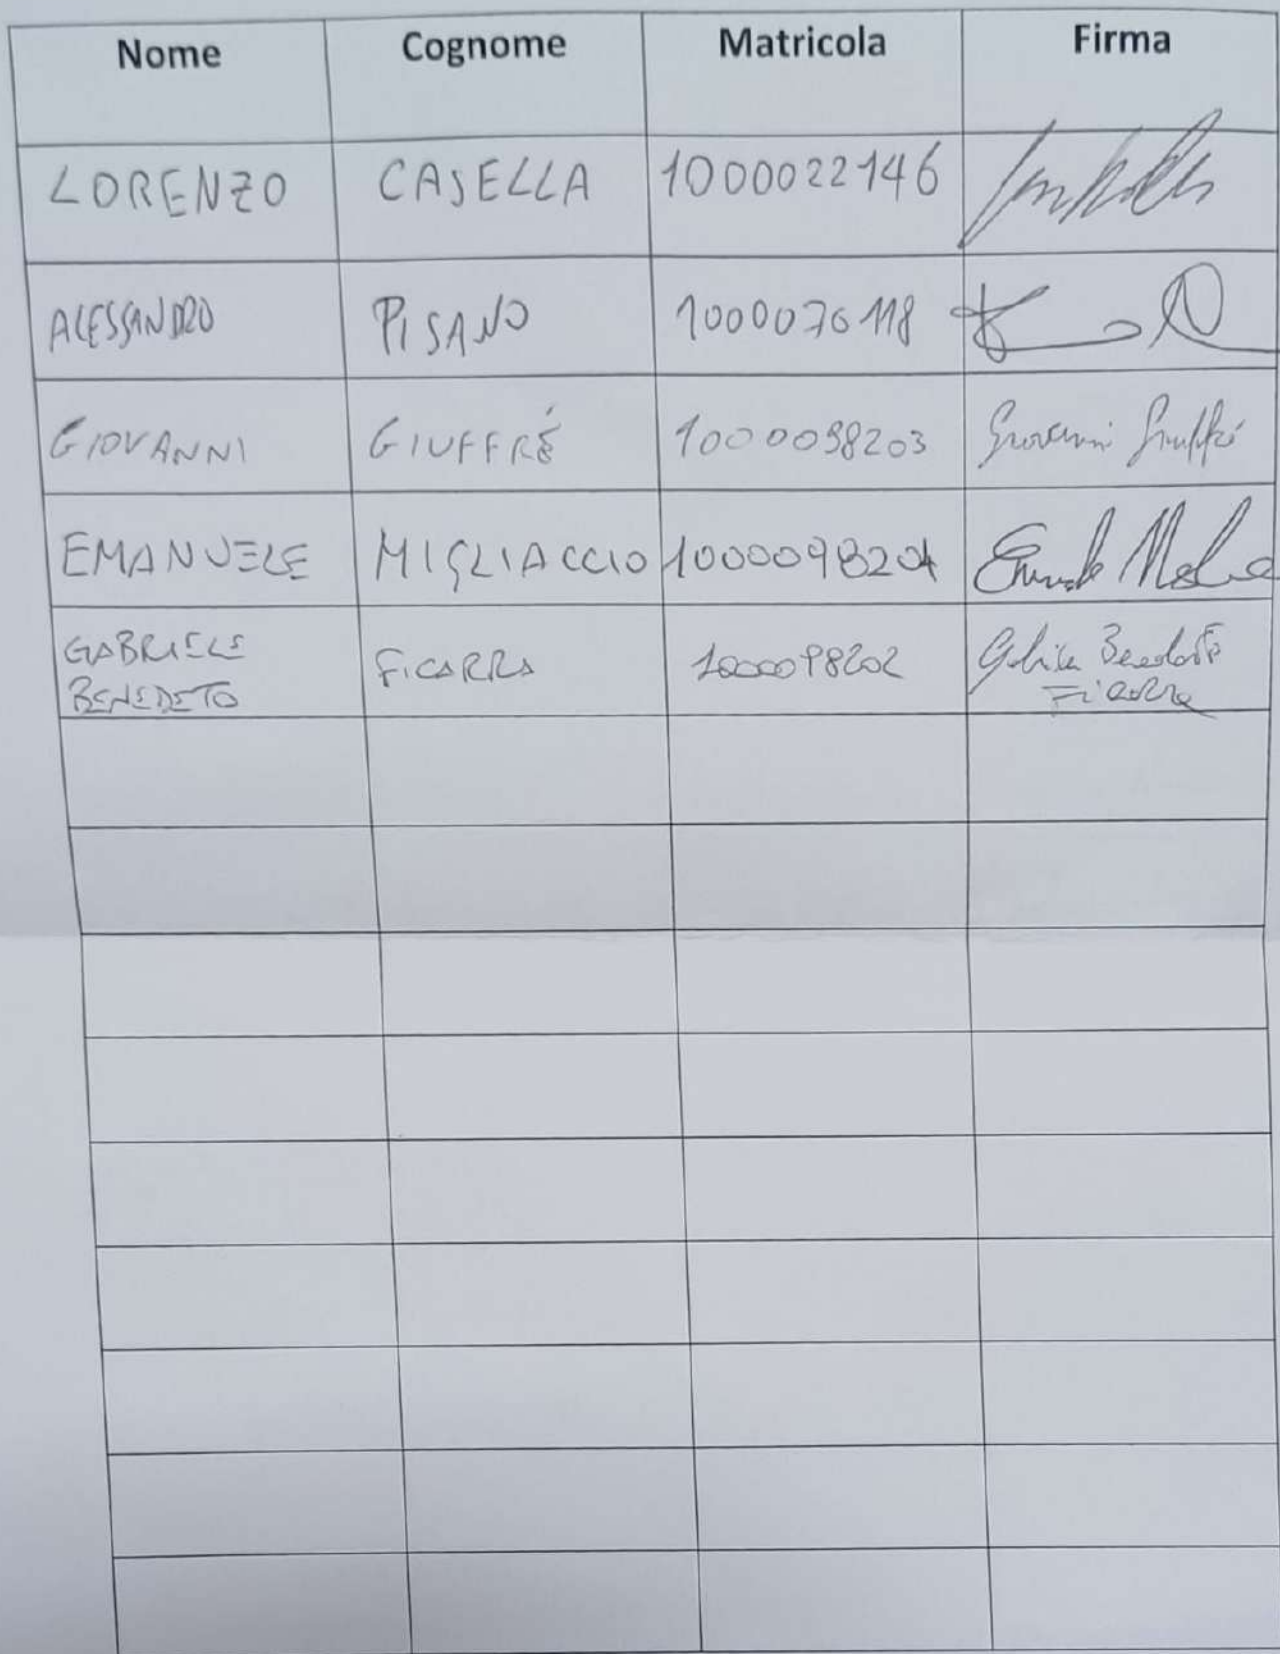 Nome Cognome Matricola Firma
LORENZO CASELLA 1000022146
ALESSANDRO PISANO 1000076118
GIOVANNI GIUFFRÉ 1000098203 Giovanni Giuffré
EMANUELE MIGLIACCIO 1000098204
GABRIELE
BENEDETO FICARRA 1000098202 Gabriele Benedetto
Ficarra